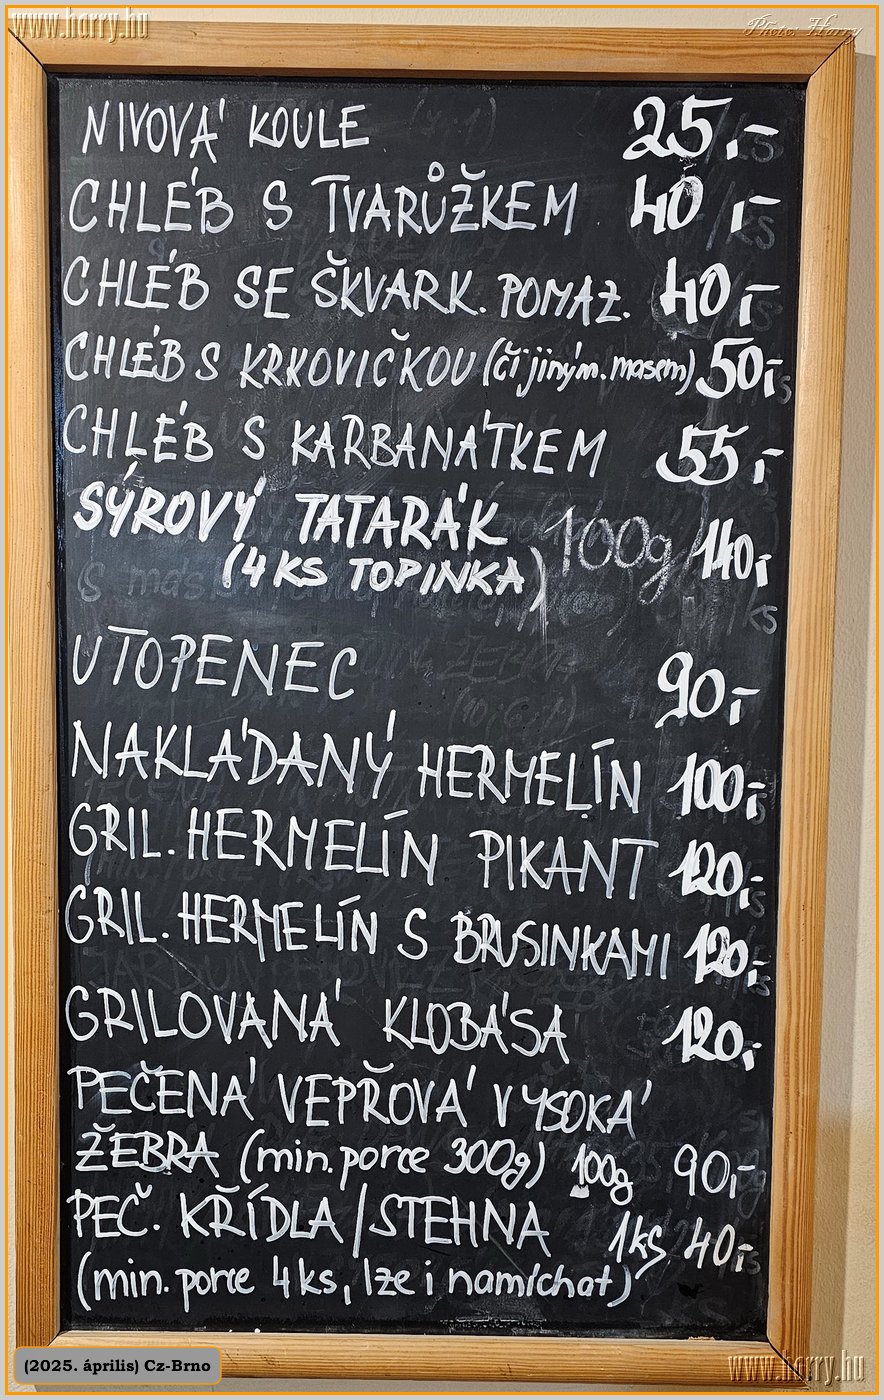 www.harry.hu
Photo: Harry
NIVOVÁ KOULE 25,-
CHLÉB S TVARŮŽKEM 40,-
CHLÉB SE ŠKVARK. POMAZ. 40,-
CHLÉB S KRKOVIČKOU (či jiným. masem) 50,-
CHLÉB S KARBANÁTKEM 55,-
SÝROVÝ TATARÁK 100g 140,-
(4 KS TOPINKA)
UTOPENEC 90,-
NAKLÁDANÝ HERMELÍN 100,-
GRIL. HERMELÍN PIKANT 120,-
GRIL. HERMELÍN S BRUSINKAMI 120,-
GRILOVANÁ KLOBÁSA 120,-
PEČENÁ VEPŘOVÁ VYSOKÁ
ŽEBRA (min. porce 300g) 100g 90,-
PEČ. KŘÍDLA/STEHNA 1ks 40,-
(min. porce 4ks, lze i namíchat)
(2025. április) Cz-Brno
www.harry.hu